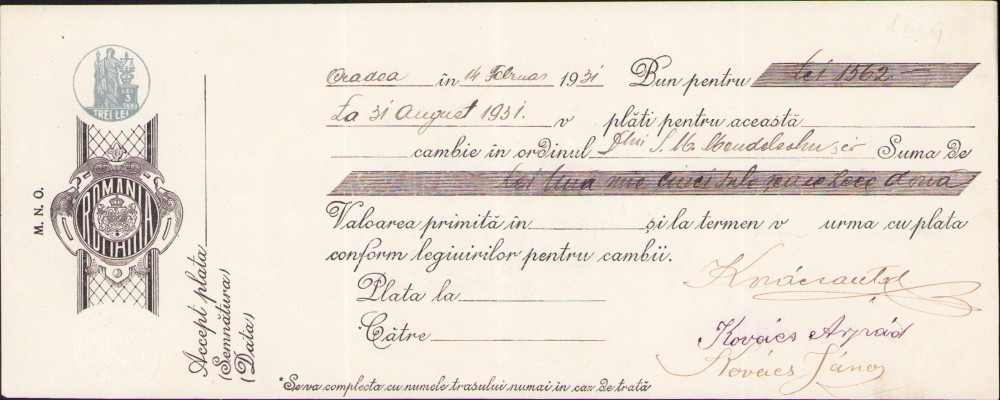 TREI LEI
LEI 3
M. N. O.
ROMANIA
Accept plata
(Semnătura)
(Data)
Oradea în 14 Februar 1931 Bun pentru Lei 1562
La 31 August 1931. v plăti pentru această
cambie în ordinul Dlui S. M. Suma de
Lei Una mie cinci sute zece două
Valoarea primită în și la termen v urma cu plata
conform legiuirilor pentru cambii.
Plata la
Către
Kovács Árpád
Kovács János
*Se va complecta cu numele trasului numai în caz de trată